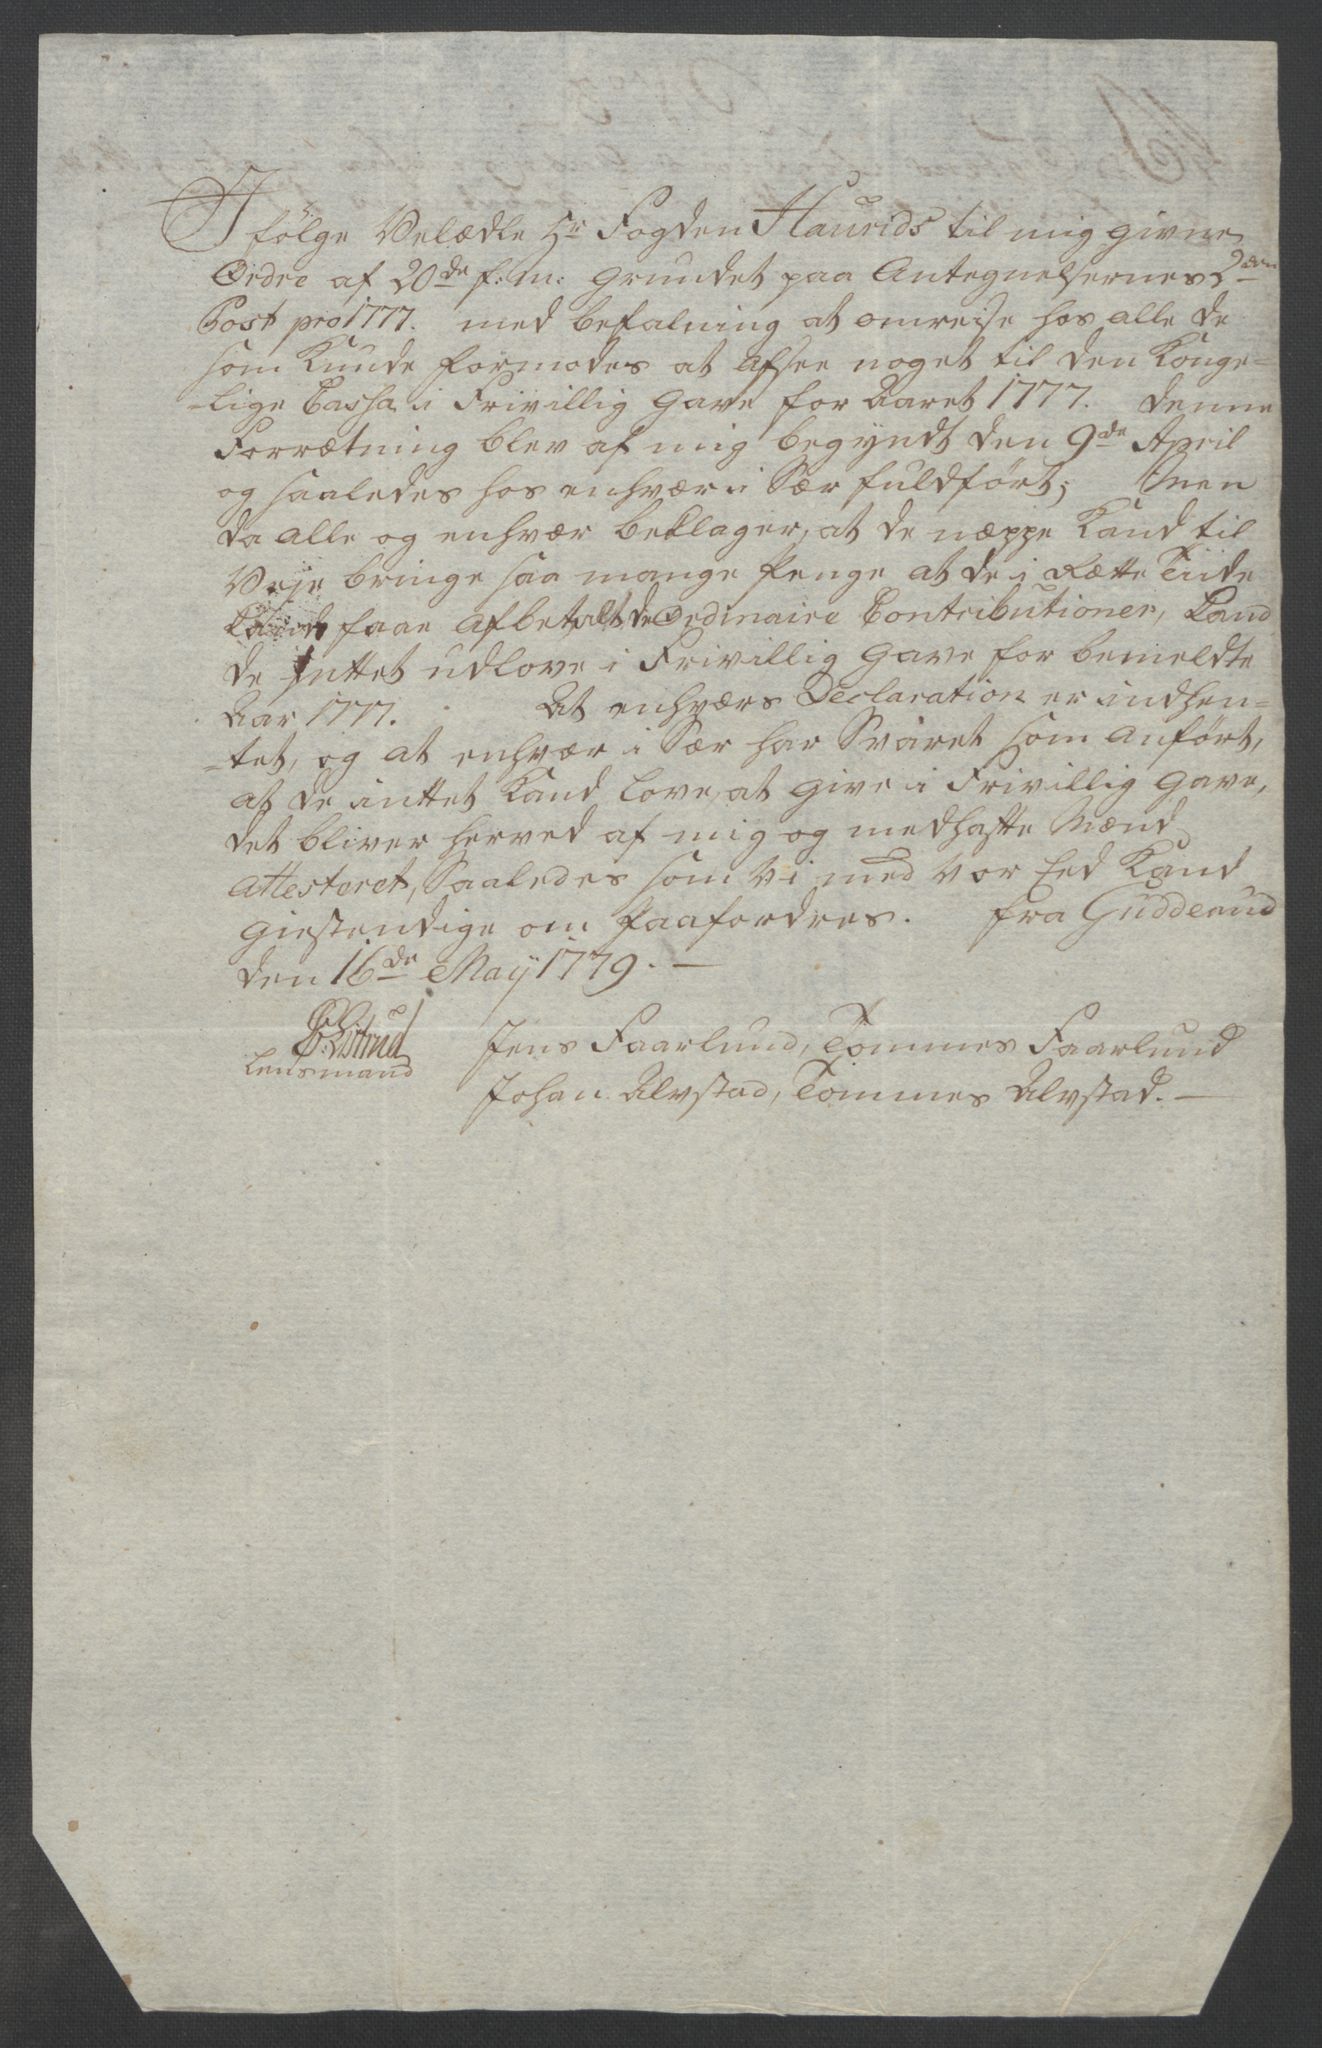 I følge Velædle Hr Fogden Haurids til mig givne
Ordre af 20de f: m: grundet paa Antegnelsernes 2den
Post pro 1777. med befalning at omreise hos alle de
som Kunde formodes at afsee noget til den Konge=
=lige Cassa i Frivillig Gave for Aaret 1777. denne
Forrætning blev af mig begyndt den 9de April
og saaledes hos enhvær i Sær fuldført; Men
da alle og enhvær beklager, at de næppe Kand til
Veje bringe saa mange Penge at de i Rætte Tiide
kand faae afbetalt de Ordinaire Contributioner, Kand
de Inttet udlove i Frivillig Gave for bemeldte
Aar 1777. At enhværs Declaration er indhen=
=tet, og at enhvær i Sær har Svaret som anført,
at de inttet Kand Love, at give i Frivillig Gave,
det bliver herved af mig og medhafte Mænd
Attesteret, Saaledes som Vi med Vor Eed Kand
giestendige om Paafordres. fra Gudderud
den 16de Maij 1779.
Jens Faarlund, Tommes Faarlund
Lensmand
Johan Alvstad, Tommes Alvstad.